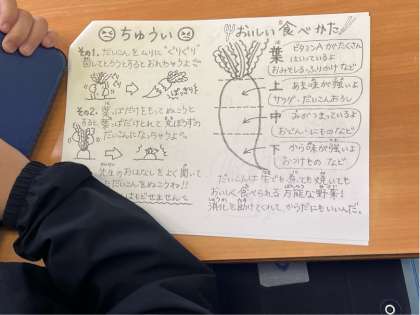 ちゅうい
その1. だいこんをムリに"ぐりぐり"
してとろうとするとおれちゃうよ
ぽっきり
その2. 葉っぱだけをもってぬこうと
すると葉っぱだけとれて
だいこんになっちゃうよ
先生のおはなしをよく聞いて
だいこんをぬこうね!!
おいしい食べかた
葉
ビタミンAがたくさん
はいっているよ
おみそしる・ふりかけ など
上
あま味が強いよ
サラダ・だいこんおろし
中
みがつまっているよ
おでん・にものなど
下
から味が強いよ
おつけもの など
だいこんは生でも煮ても焼いても
おいしく食べられる万能な野菜!
消化を助けてくれて、からだにもいいんだ。